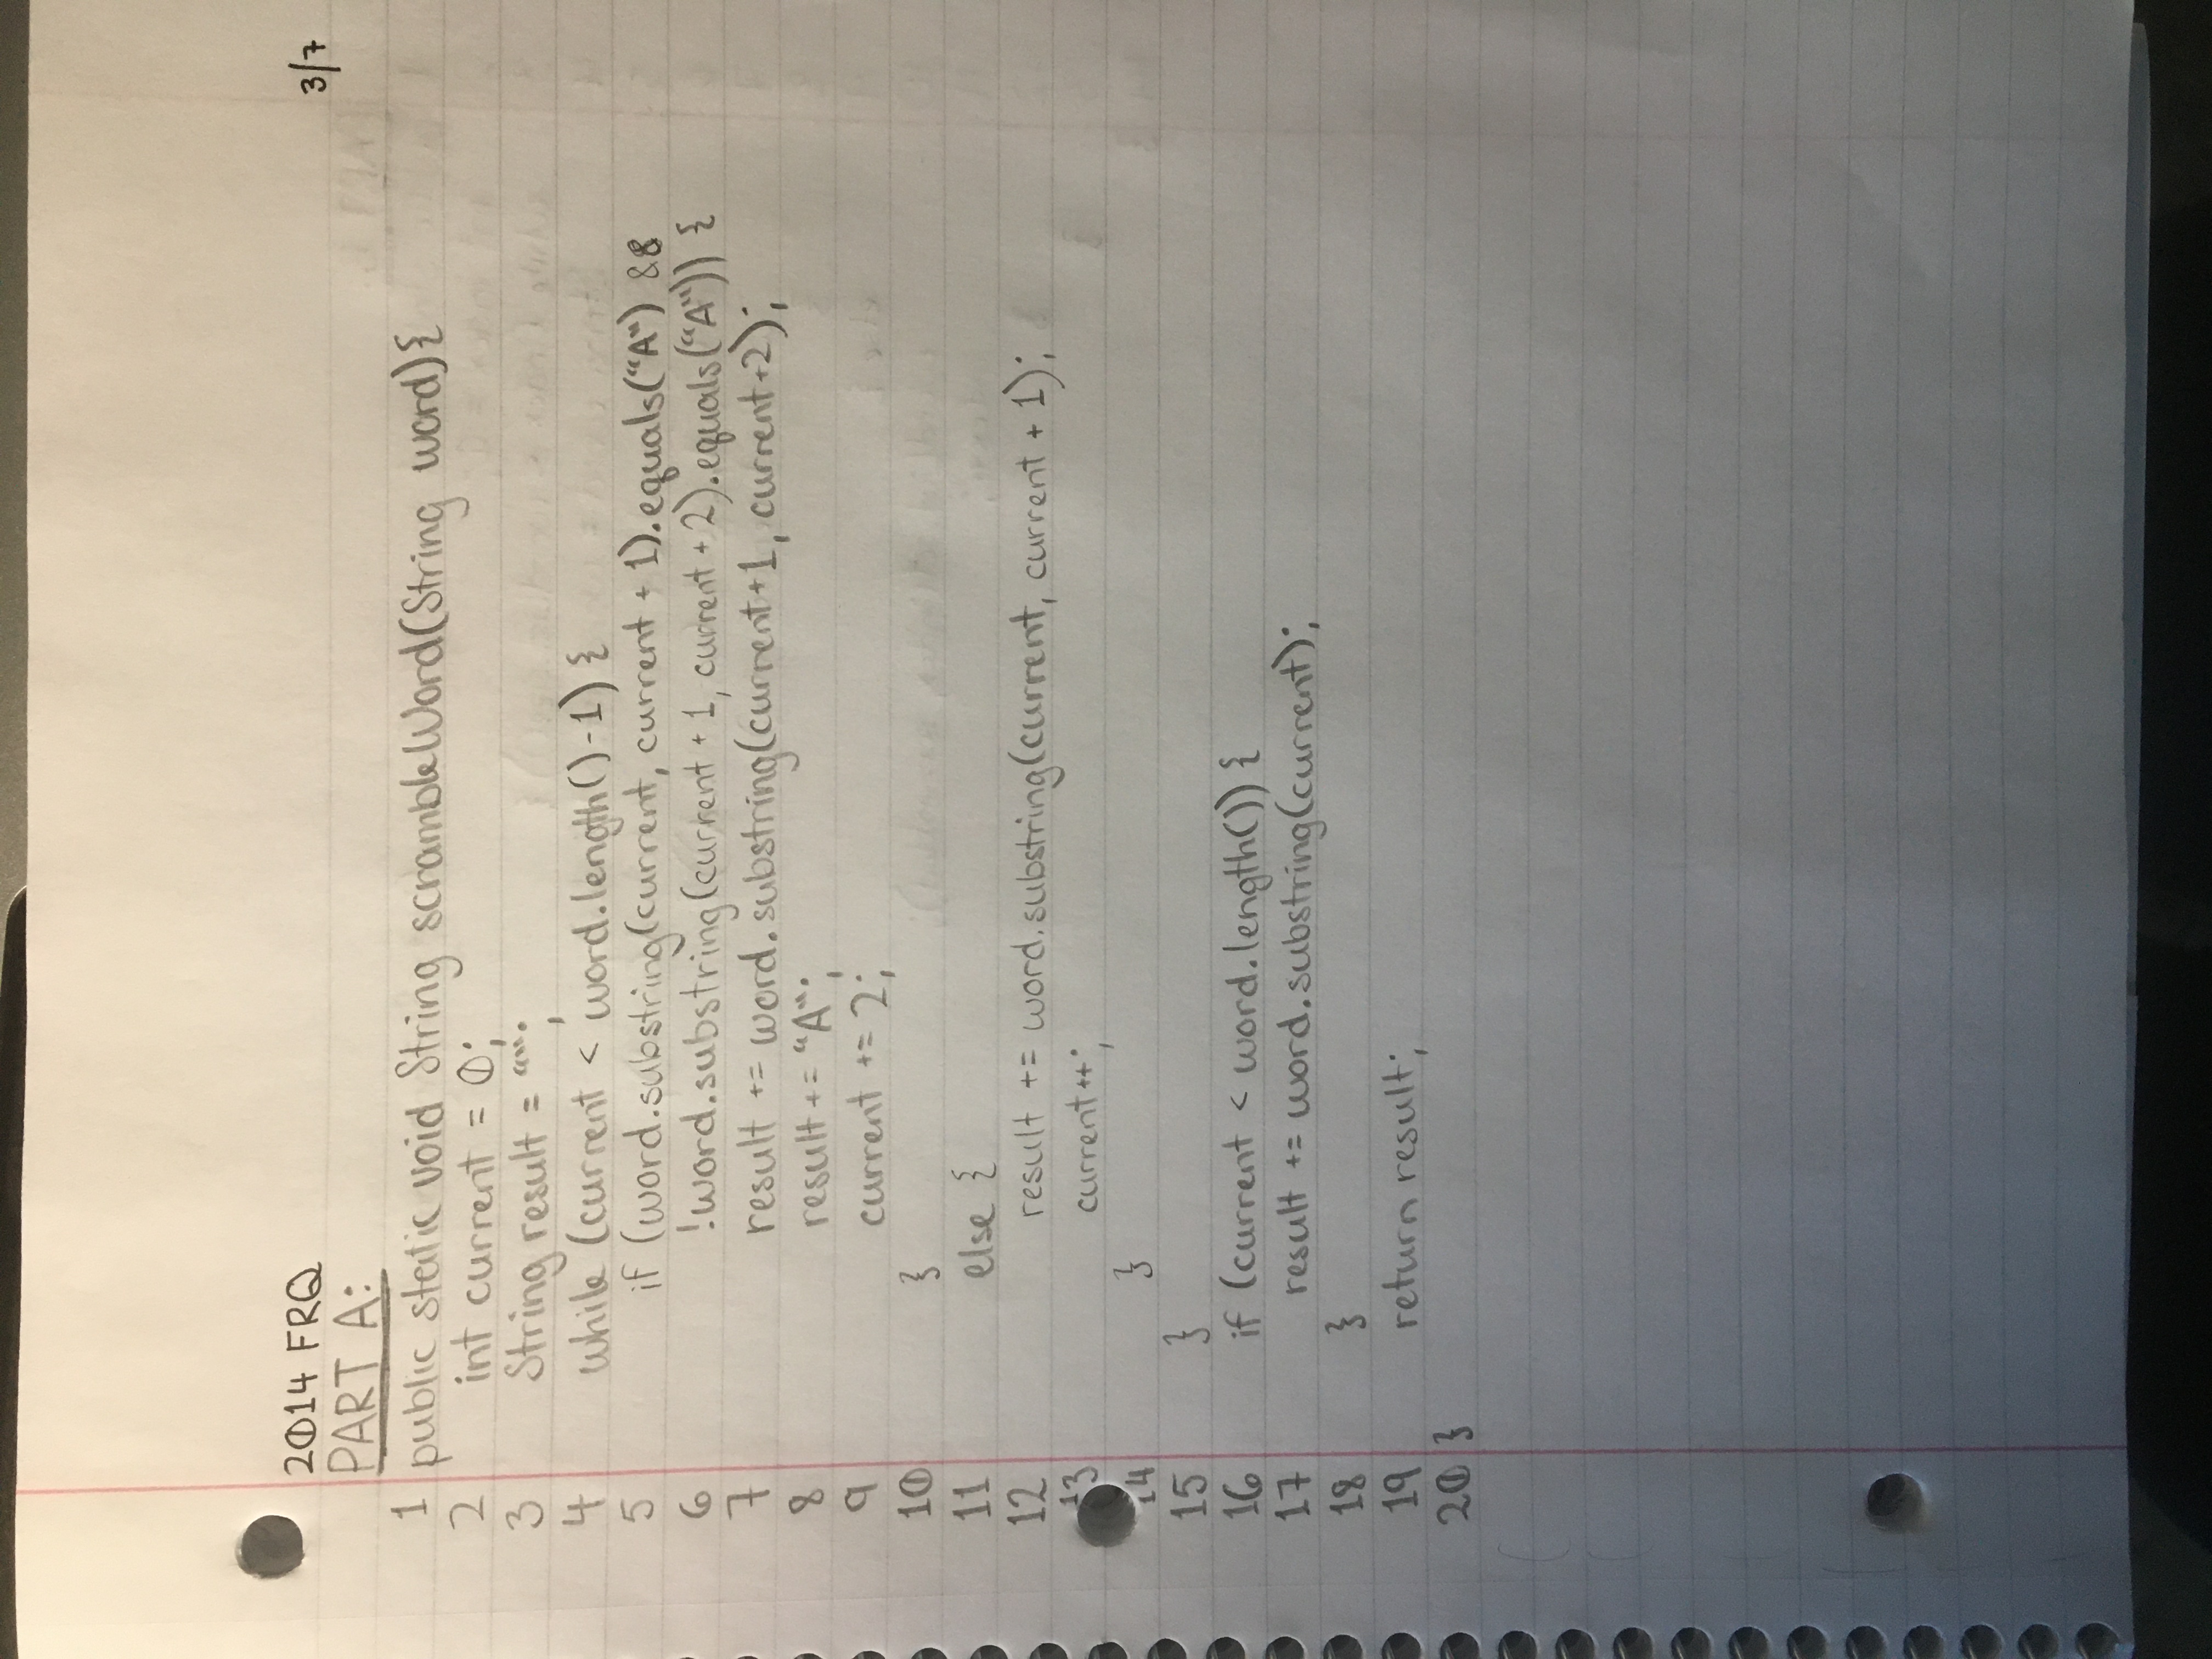 2014 FRQ 3/7
PART A:
1 public static void String scrambleWord(String word){
2 int current = 0;
3 String result = “”;
4 while (current < word.length()-1) {
5 if (word.substring(current, current + 1).equals(“A”) &&
6 !word.substring(current + 1, current + 2).equals(“A”)) {
7 result += word.substring(current+1, current+2);
8 result += “A”;
9 current += 2;
10 }
11 else {
12 result += word.substring(current, current + 1);
13 current++;
14 }
15 }
16 if (current < word.length()) {
17 result += word.substring(current);
18 }
19 return result;
20 }